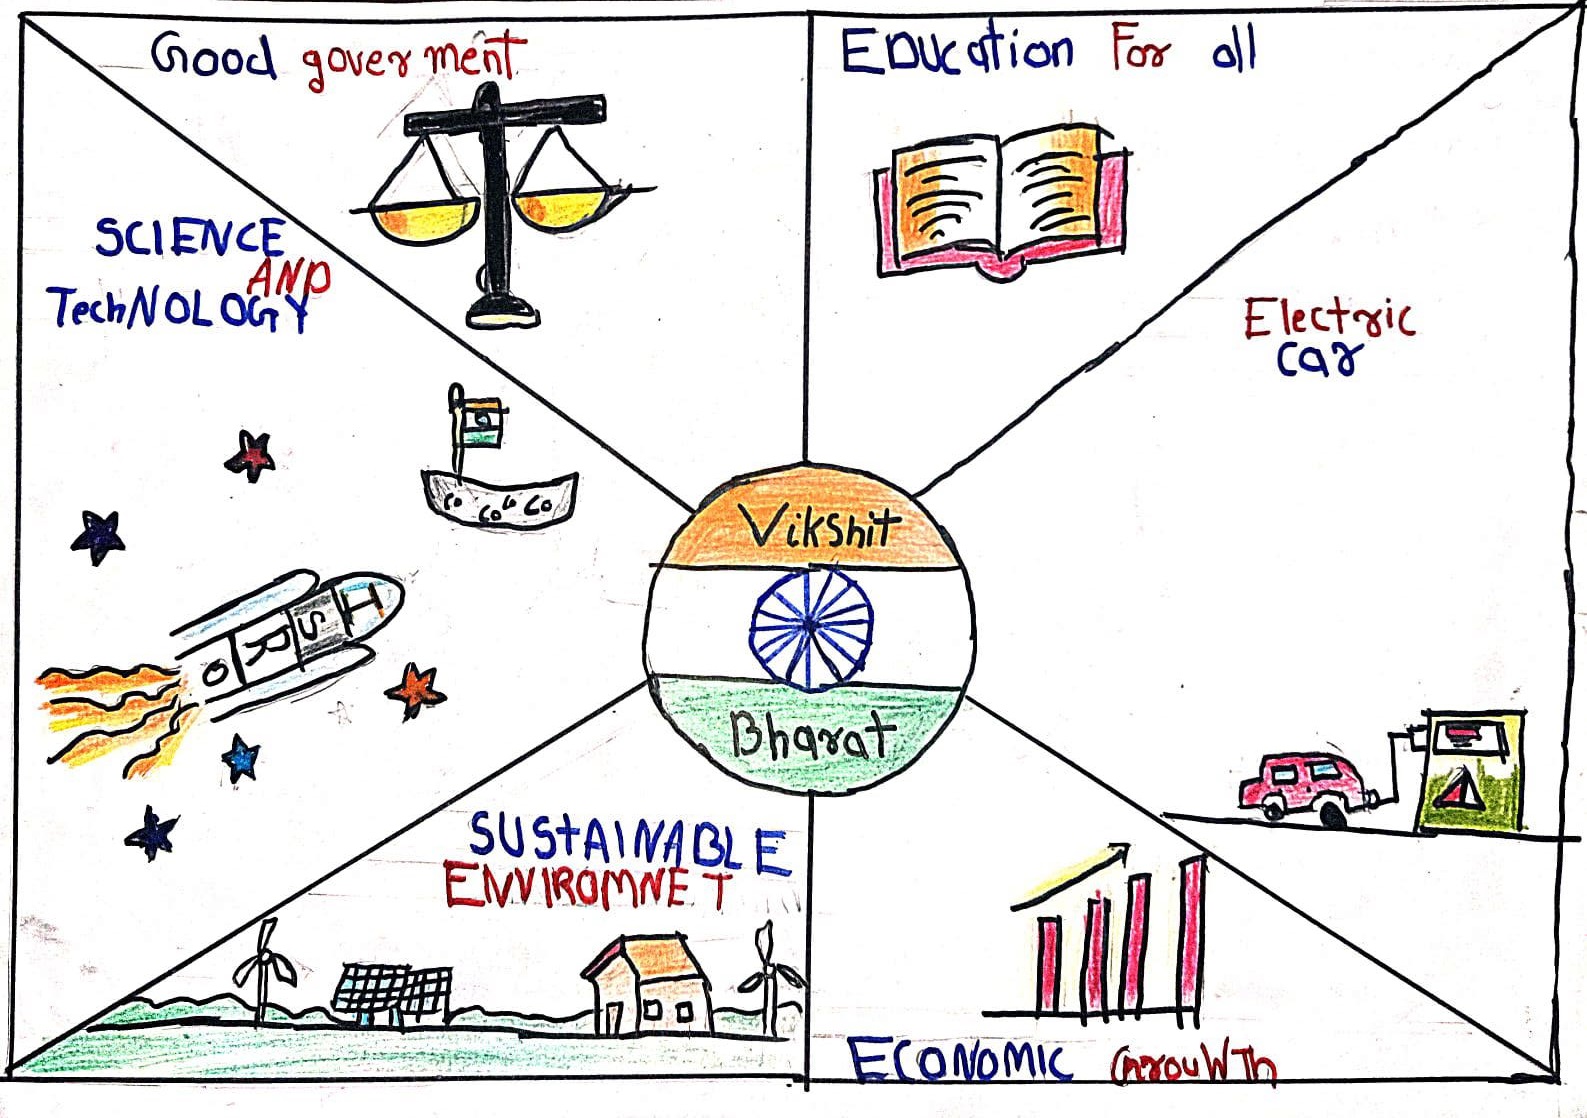 Good goverment
Education For all
SCIENCE
AND
TechNOLOGY
Electric
car
Vikshit
Bharat
ISRO
SUStAINABLE
ENVIROMNET
ECONOMIC GrouWTh